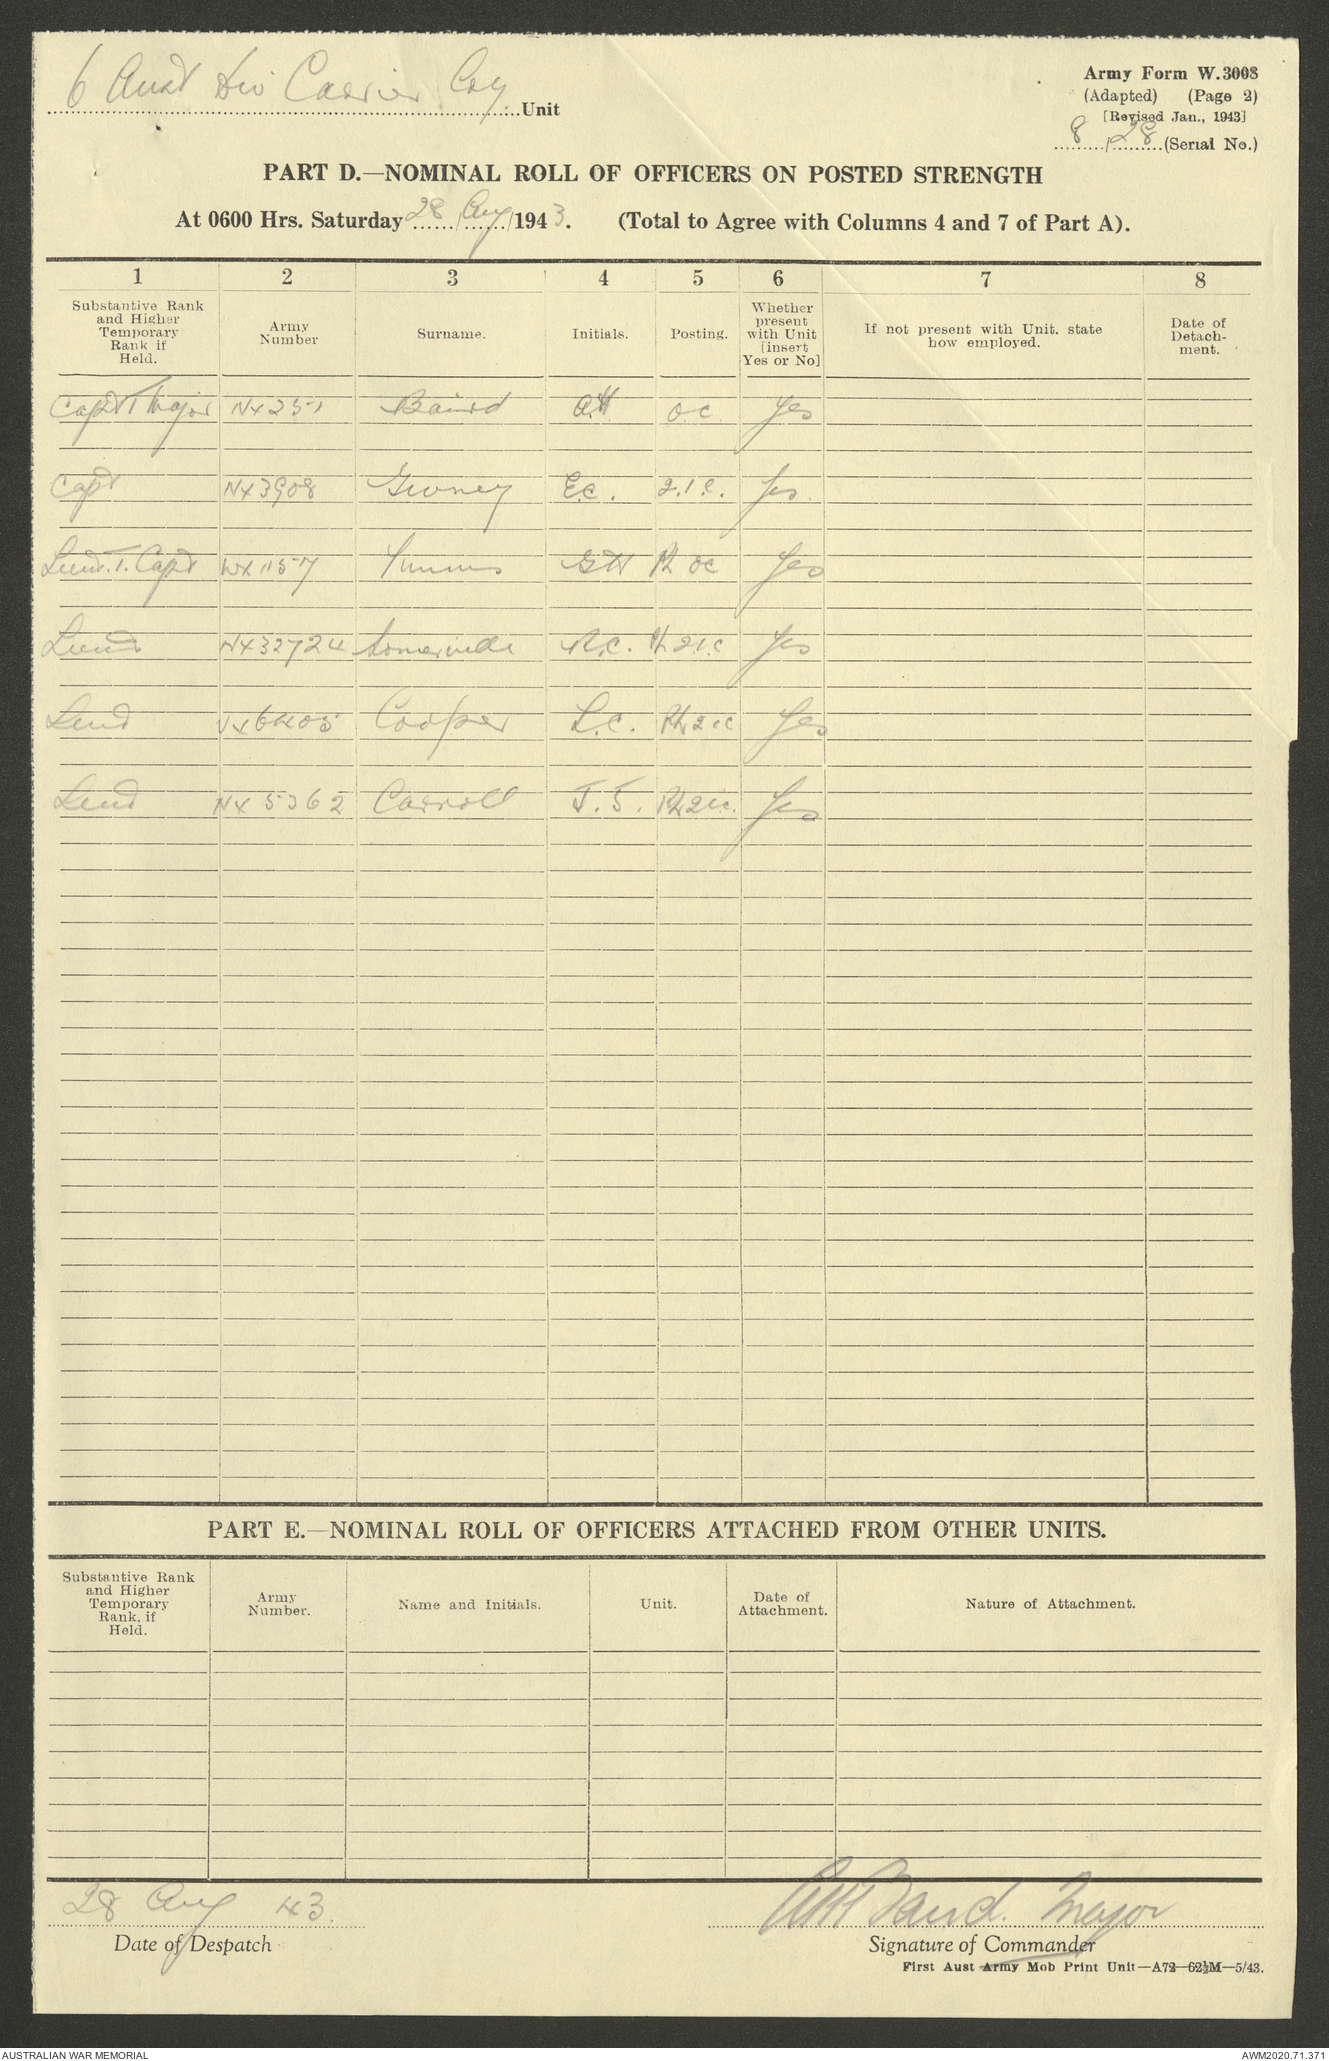 6 Aust Div Carrier Coy Unit
Army Form W.3008
(Adapted) (Page 2)
[Revised Jan., 1943]
8 / 28 (Serial No.)
PART D.—NOMINAL ROLL OF OFFICERS ON POSTED STRENGTH
At 0600 Hrs. Saturday 28 / Aug / 1943. (Total to Agree with Columns 4 and 7 of Part A).
1 2 3 4 5 6 7 8
Substantive Rank and Higher Temporary Rank if Held. Army Number Surname. Initials. Posting. Whether present with Unit [insert Yes or No] If not present with Unit, state how employed. Date of Detach-ment.
Capt T Major NX251 Baird A.H O.C. Yes
Capt NX3908 E.C. 2.I.C. Yes.
Lieut. T. Capt WX1157 GH Pl OC Yes
Lieut NX32724 Somerville R.C. Pl 2IC Yes
Lieut VX6405 Cooper L.C. Pl 2IC Yes
Lieut NX5362 Carroll J.J. Pl 2ic. Yes
PART E.—NOMINAL ROLL OF OFFICERS ATTACHED FROM OTHER UNITS.
Substantive Rank and Higher Temporary Rank, if Held. Army Number. Name and Initials. Unit. Date of Attachment. Nature of Attachment.
28 Aug 43. AH Baird. Major
Date of Despatch Signature of Commander
First Aust Army Mob Print Unit—A72—62½M—5/43.
AUSTRALIAN WAR MEMORIAL AWM2020.71.371